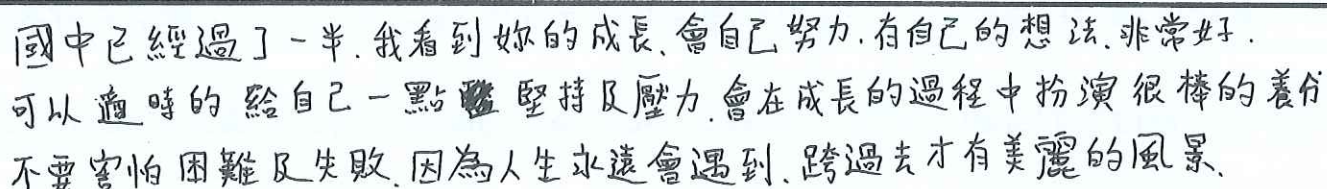 國中已經過了一半.我看到妳的成長、會自己努力.有自己的想法.非常好.
可以適時的給自己一點堅持及壓力.會在成長的過程中扮演很棒的養份
不要害怕困難及失敗.因為人生永遠會遇到.跨過去才有美麗的風景.